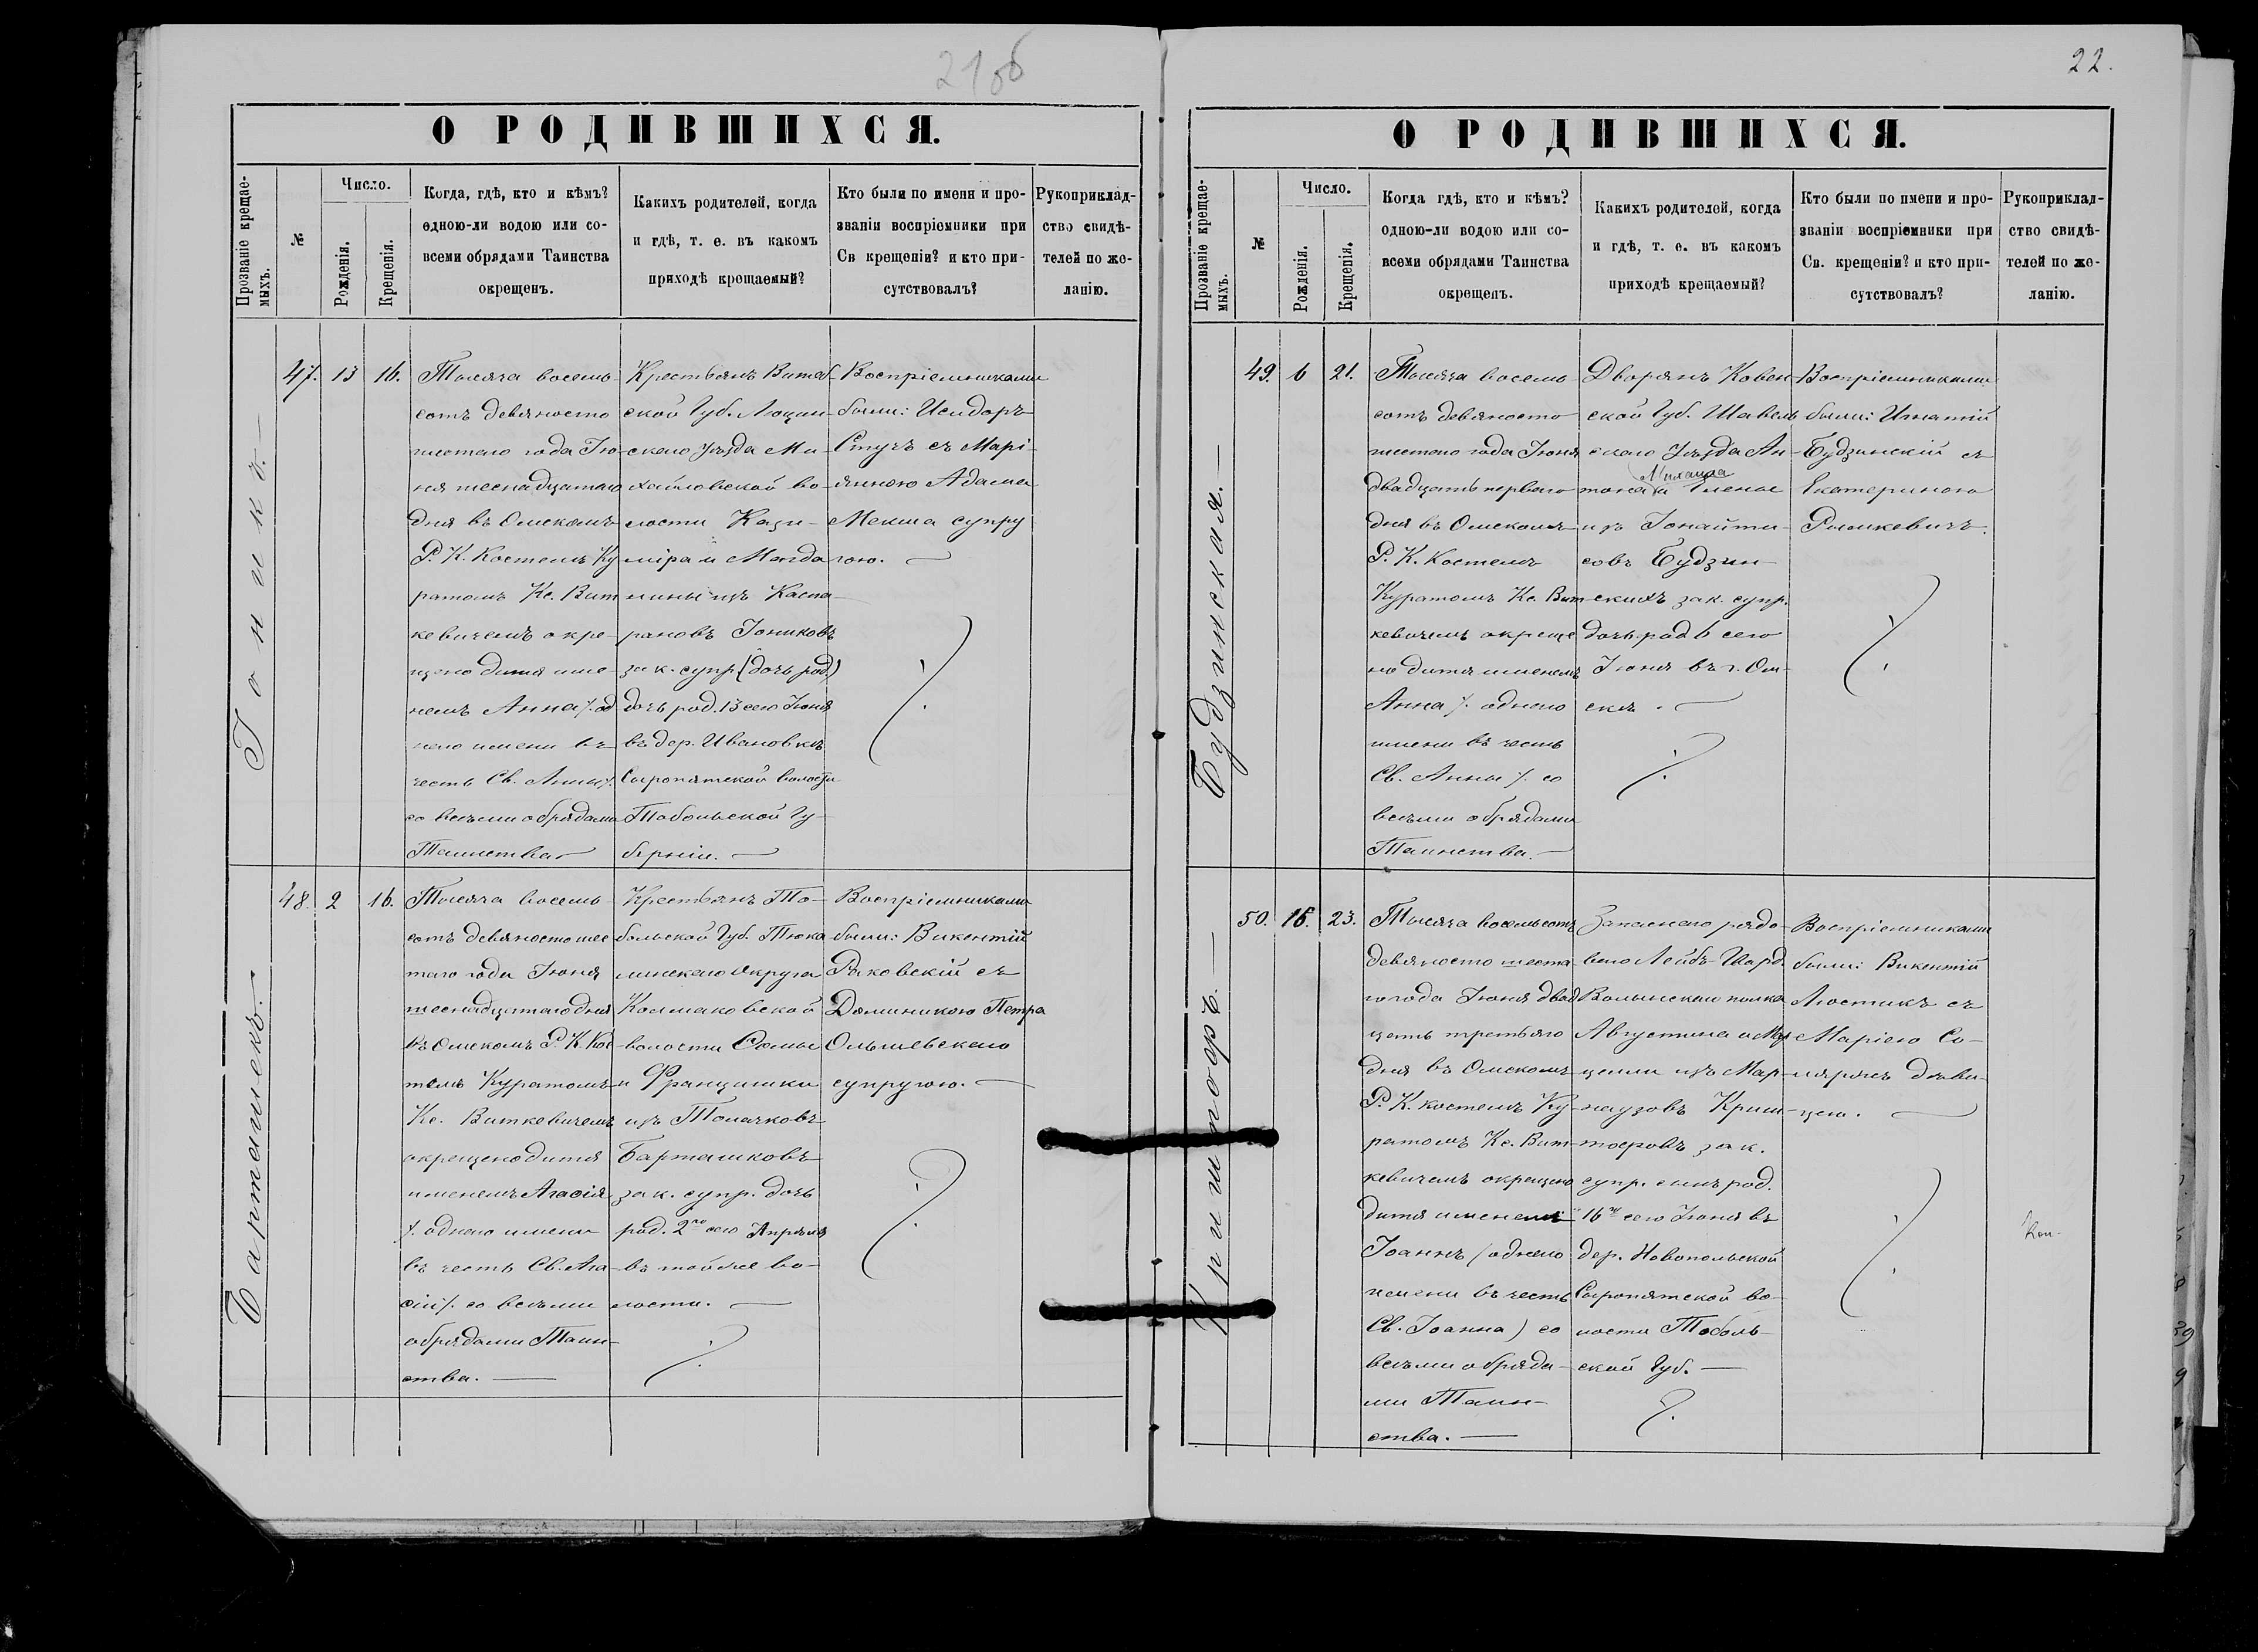 21об
О РОДИВШИХСЯ.
Прозваніе крещае-
мыхъ.
№
Число.
Рожденія.
Крещенія.
Когда, гдѣ, кто и кѣмъ?
одною-ли водою или со-
всеми обрядами Таинства
окрещенъ.
Какихъ родителей, когда
и гдѣ, т. е. въ какомъ
приходѣ крещаемый?
Кто были по имени и про-
званіи воспріемники при
Св крещеніи? и кто при-
сутствовалъ?
Рукоприклад-
ство свидѣ-
телей по же-
ланію.
Іоникъ.
47. 13 16.
Тысяча восемь-
сотъ девяносто
шестаго года Ію-
ня шеснадцатаго
дня въ Омскомъ
Р. К. Костелѣ Ку
ратомъ Кс. Вит
кевичемъ окре-
щено дитя име-
немъ Анна /. од
ного имени въ
честь Св. Анны /.
со всѣми обрядами
Таинства
Крестьянъ Витеб
ской Губ. Люцин
скаго уѣзда Ми-
хайловской во-
лости Кази-
міра и Магда
лины изъ Каспа-
рановъ Іониковъ
зак. супр. (дочь род)
дочь род. 13 сего Іюня
въ дер. Ивановкѣ
Сыропятской волости
Тобольской Гу-
берніи.
Воспріемниками
были: Исидоръ
Стучъ съ Марі-
янною Адама
Мекша супру
гою.
Барташекъ.
48. 2 16.
Тысяча восемь-
сотъ девяносто шес
таго года Іюня
шеснадцатаго дня
въ Омскомъ Р. К. Кос-
телѣ Куратомъ
Кс. Виткевичемъ
окрещено дитя
именемъ Агафія
/. одного имени
въ честь Св. Ага-
фіи /. со всѣми
обрядами Таин-
ства.
Крестьянъ То-
больской Губ. Тюка
линскаго округа
Колмаковской
волости Сомы
и Францишки
изъ Толачковъ
Барташковъ
зак. супр. дочь
род. 2го сего Апрѣля
въ той же во-
лости.
Воспріемниками
были: Викентій
Раковскій съ
Доминикою Петра
Ольшевскаго
супругою.
22.
О РОДИВШИХСЯ.
Прозваніе крещае-
мыхъ.
№
Число.
Рожденія.
Крещенія.
Когда гдѣ, кто и кѣмъ?
одною-ли водою или со-
всеми обрядами Таинства
окрещенъ.
Какихъ родителей, когда
и гдѣ, т. е. въ какомъ
приходѣ крещаемый?
Кто были по имени и про-
званіи воспріемники при
Св. крещеніи? и кто при-
сутствовалъ?
Рукоприклад-
ство свидѣ-
телей по же-
ланію.
Будзинская.
49. 6 21.
Тысяча восемь-
сотъ девяносто
шестаго года Іюня
двадцать перваго
дня въ Омскомъ
Р. К. Костелѣ
Куратомъ Кс. Вит-
кевичемъ окреще
но дитя именемъ
Анна /. одного
имени въ честь
Св. Анны /. со
всѣми обрядами
Таинства.
Дворянъ Ковен-
ской Губ. Шавель
скаго Уѣзда Ан-
тона и Елены
изъ Іонайти-
совъ Будзин-
скихъ зак. супр.
дочь род 6 сего
Іюня въ г. Ом-
скѣ.
Воспріемниками
были: Игнатій
Будзинскій съ
Екатериною
Рымкевичъ.
Криштопръ.
50. 16. 23.
Тысяча восемьсотъ
девяносто шеста-
го года Іюня двад
цать третьяго
дня въ Омскомъ
Р. К. костелѣ Ку-
ратомъ Кс. Вит-
кевичемъ окрещено
дитя именемъ
Іоаннъ (одного
имени въ честь
Св. Іоанна) со
всѣми обряда-
ми Таин-
ства.
Запаснаго рядо-
ваго Лейбъ-Гвард.
Волынскаго полка
Августина и Мар
целіи изъ Мар-
наузовъ Криш-
топровъ зак.
супр. сынъ род.
16го сего Іюня въ
дер. Новопольской
Сыропятской во-
лости Тоболь-
ской Губ.
Воспріемниками
были: Викентій
Люстикъ съ
Маріею Со-
ляряжъ дѣви-
цею.
Коп-